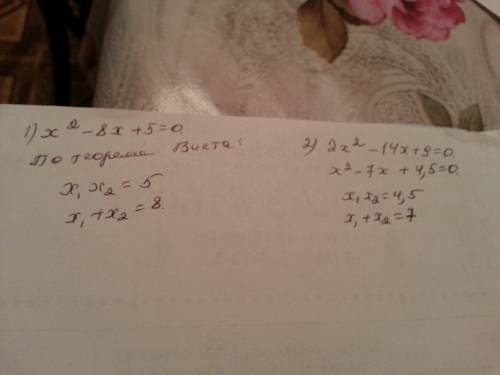 1) x² - 8x + 5 = 0.
По теореме Виета:
x₁ x₂ = 5
x₁ + x₂ = 8.
2) 2x² - 14x + 9 = 0.
x² - 7x + 4,5 = 0.
x₁ x₂ = 4,5
x₁ + x₂ = 7